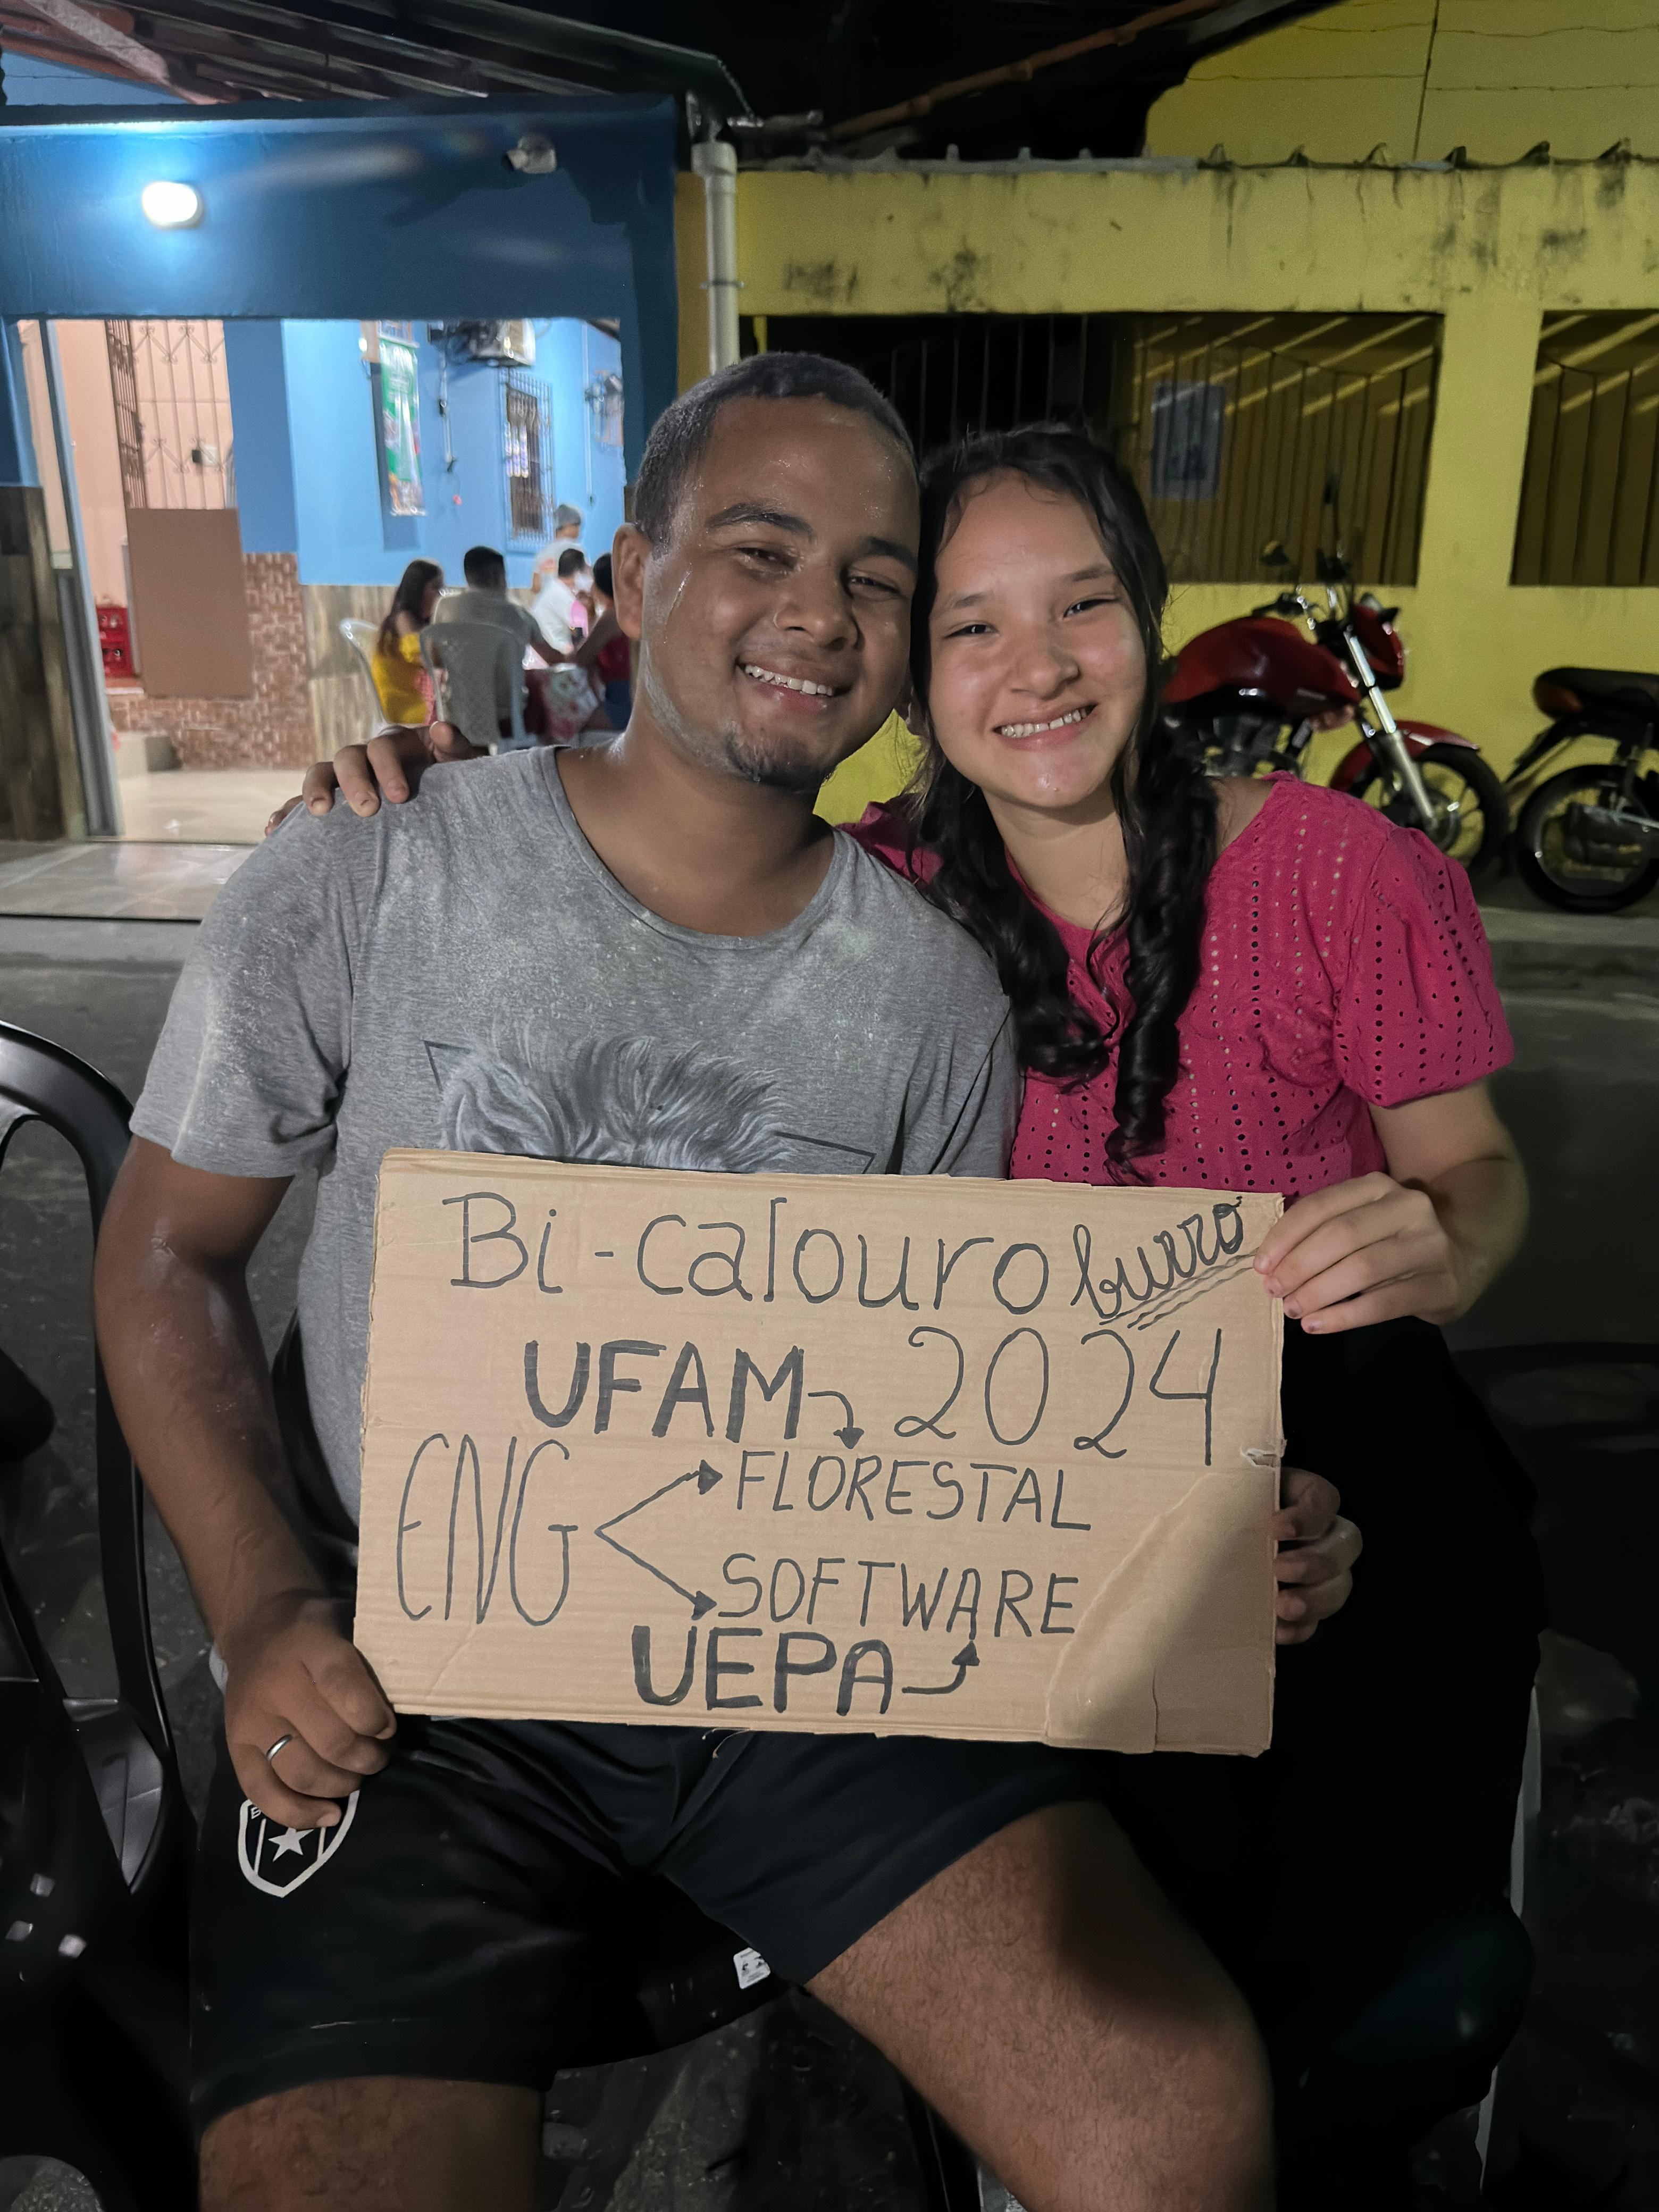 Bi-calouro burro
UFAM 2024
ENG FLORESTAL
SOFTWARE
UEPA